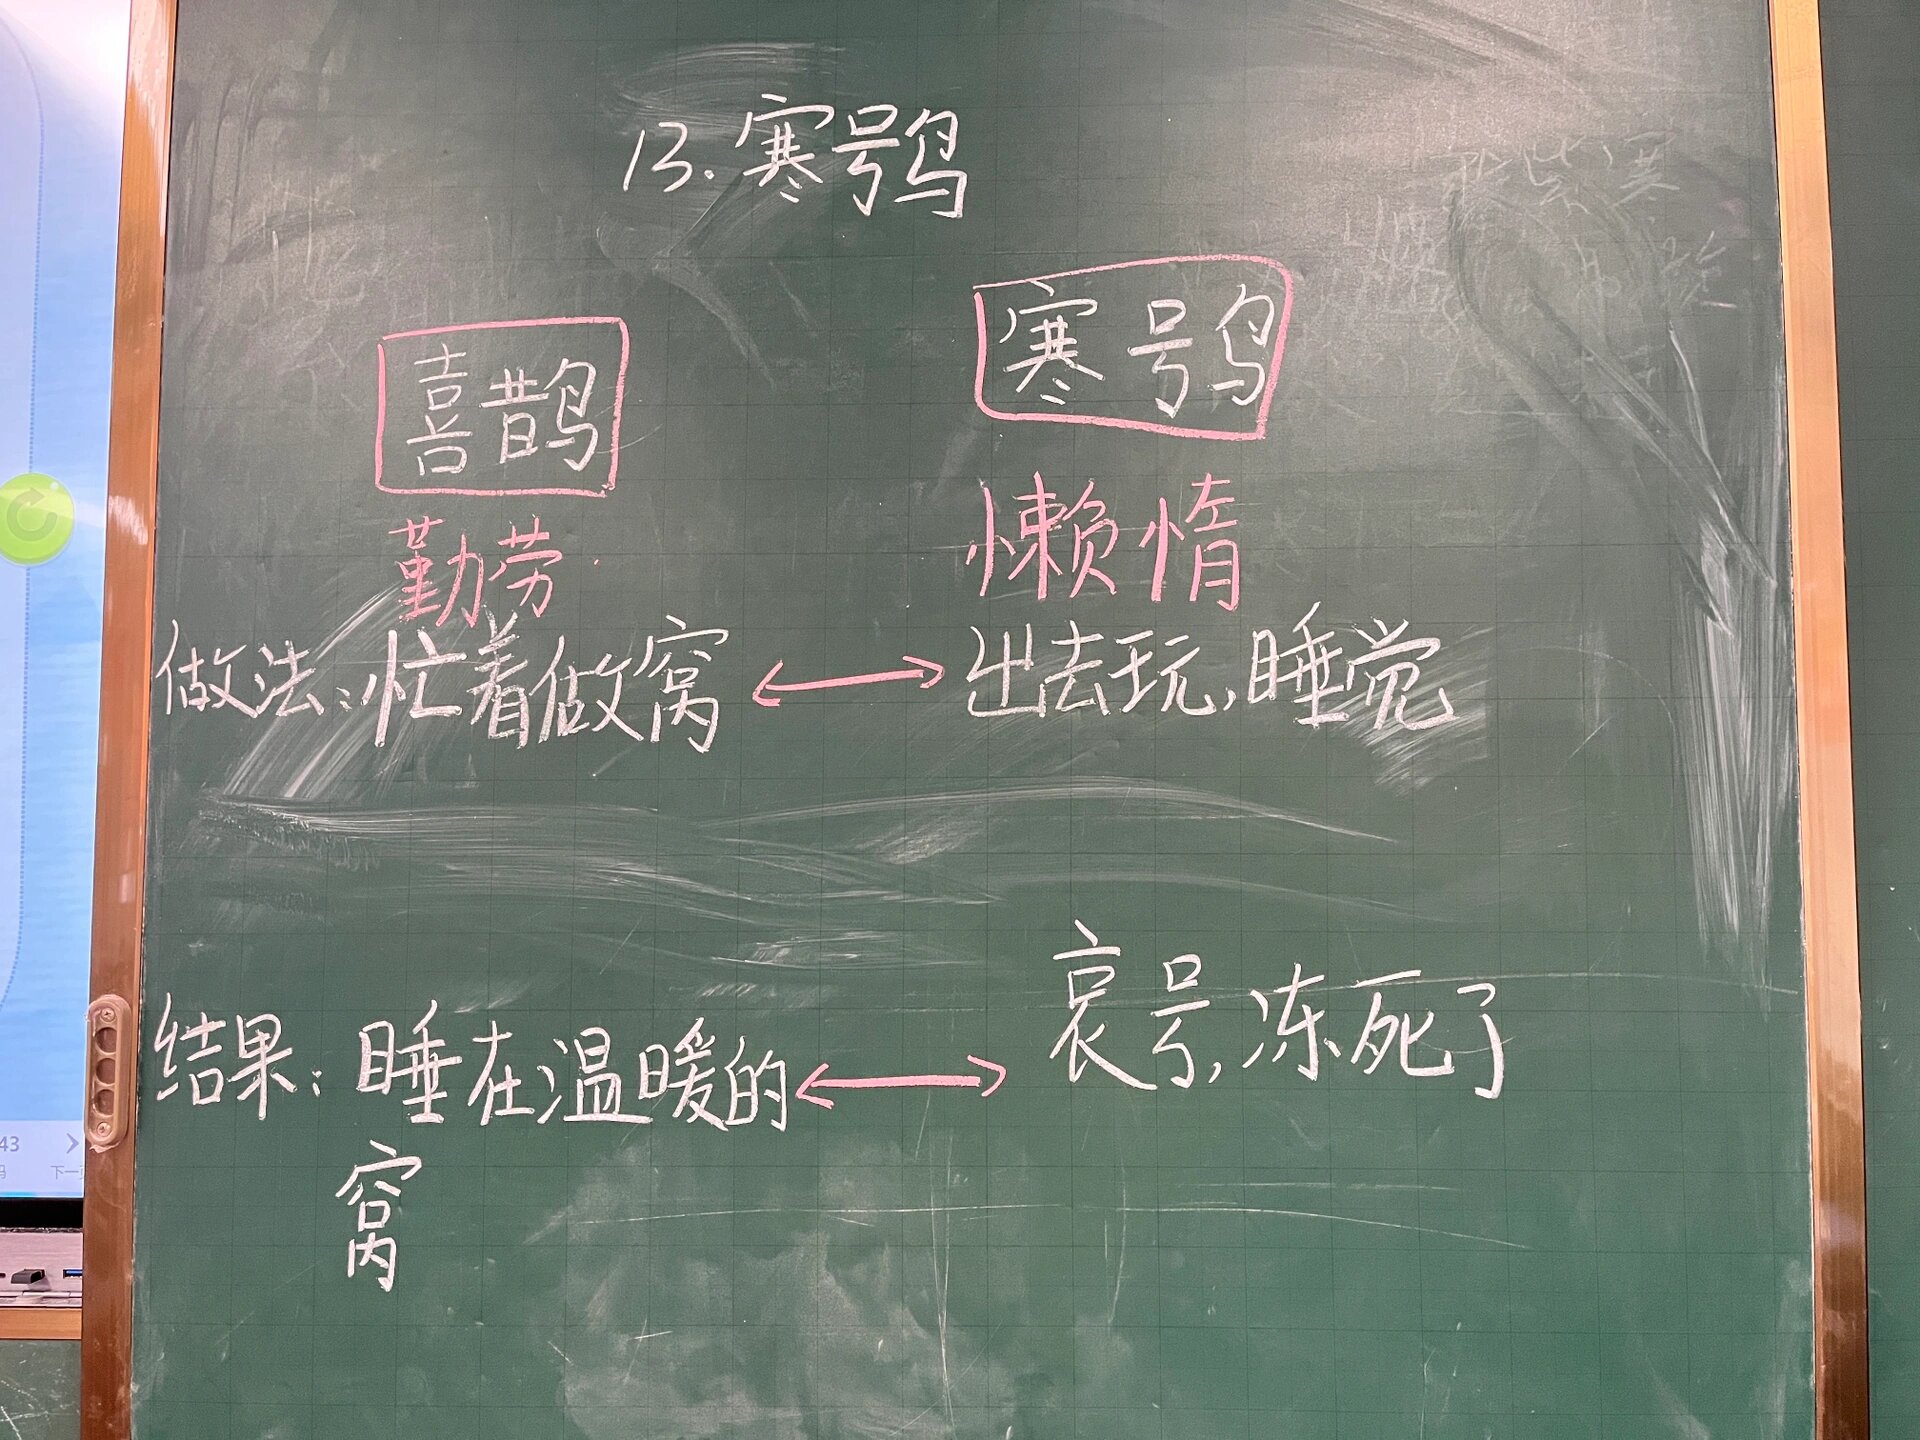 13.寒号鸟
喜鹊
寒号鸟
勤劳
懒惰
做法:忙着做窝 ←→ 出去玩,睡觉
结果:睡在温暖的 ←→ 哀号,冻死了
窝
43
下一